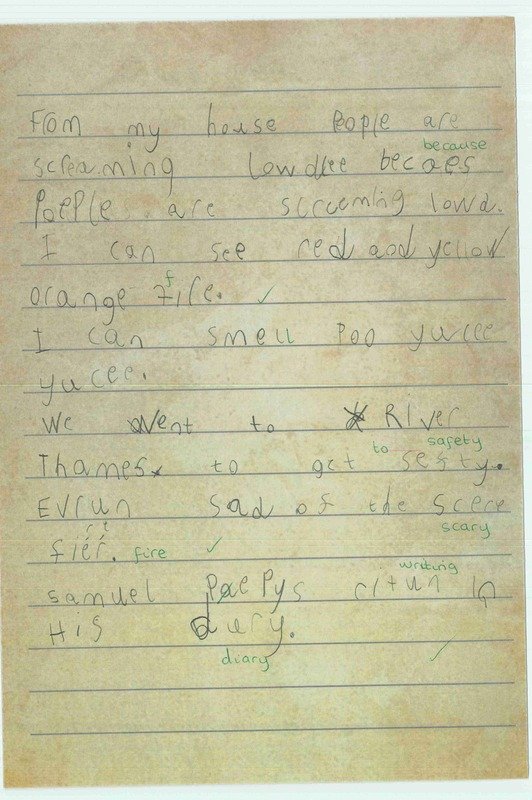 From my house People are
because
screaming lowdlee becaes
Paeple are screeming lowd.
I can see red and yellow
f
orange fire. ✓
I can smell Poo yucee
yucee.
We Went to River
to safety
Thames to get sesty.
EVrun sad of the scere
scary
fier. fire ✓
writing
samuel Paepys citun in
His duery.
diary ✓